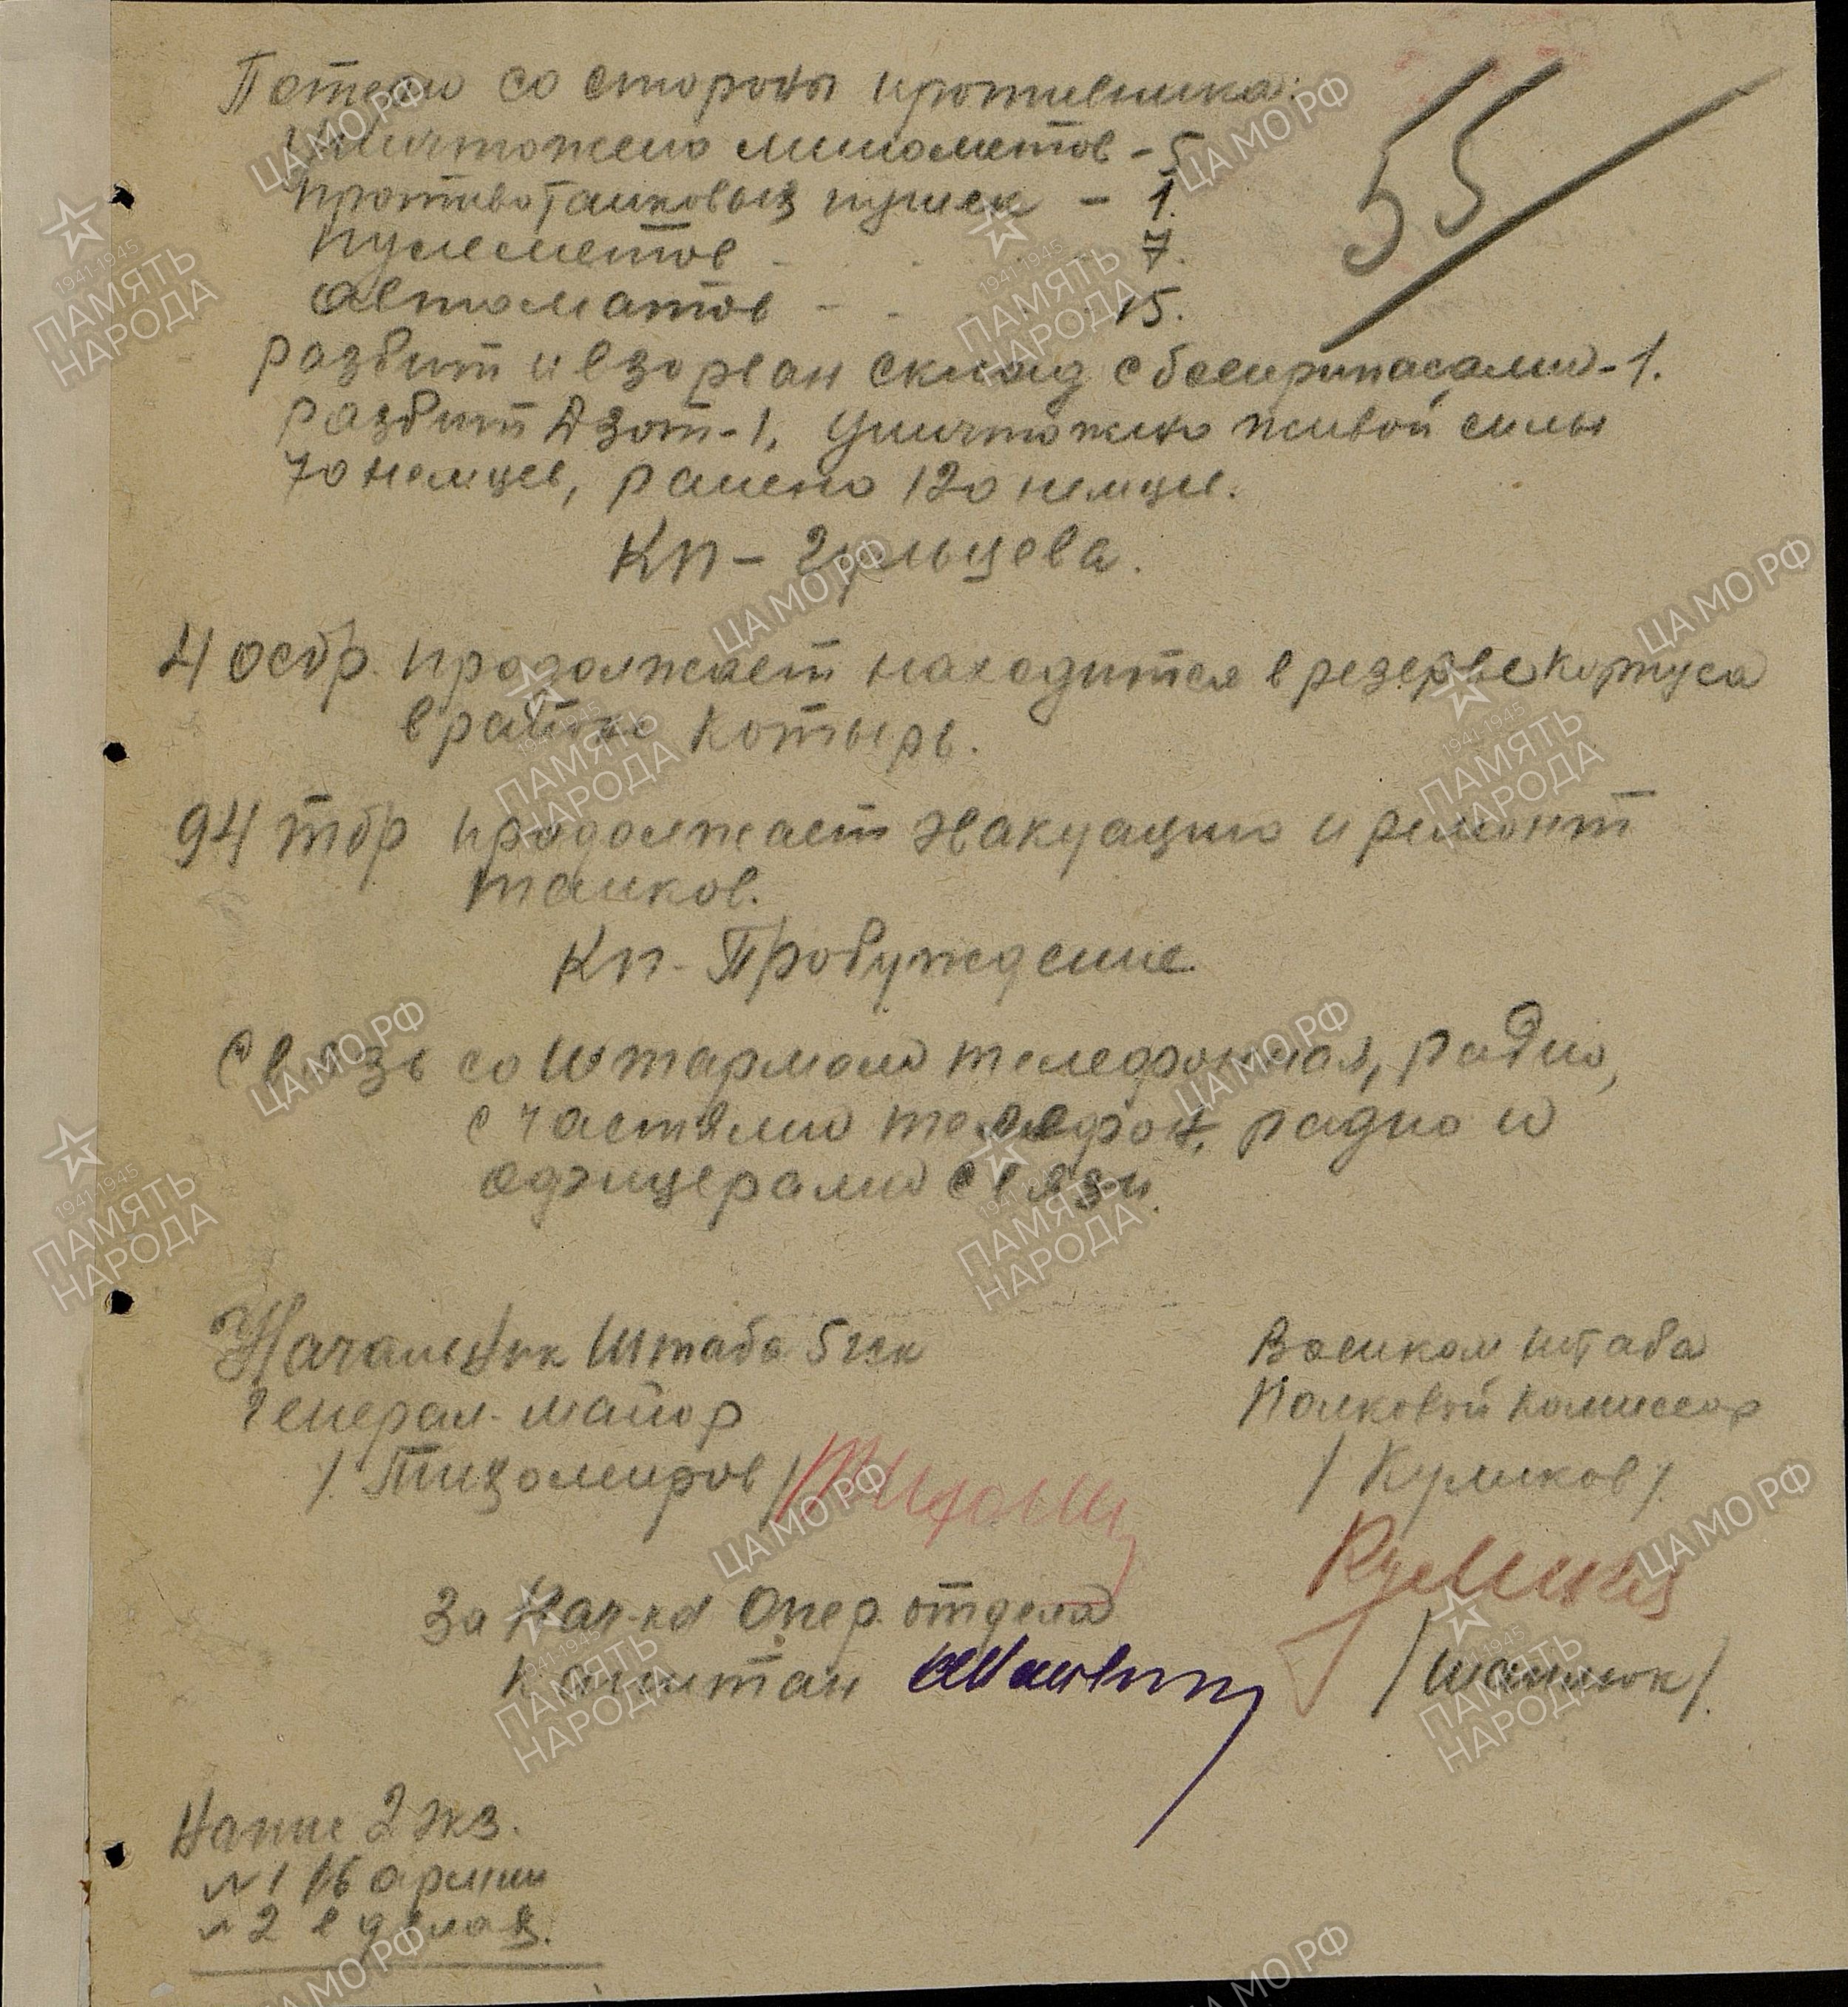 55
Потери со стороны противника:
Уничтожено минометов - 5
противотанковых пушек - 1.
пулеметов - 7.
автоматов - 15.
разбит и взорван склад с боеприпасами - 1.
разбит Дзот - 1. Уничтожено живой силы
70 немцев, ранено 120 немцев.
КП - Гульцева.
4 осбр. продолжает находится в резерве корпуса
в районе Котырь.
94 тбр продолжает эвакуацию и ремонт
танков.
КП - Пробуждение
Связь со Штармом телефонная, радио,
с частями телефон, радио и
офицерами связи.
Начальник Штаба 5 гск
Генерал-майор
/Тихомиров/
Военком штаба
Полковой комиссар
/Куликов/.
За Нач-ка Опер. отдела
капитан
/Шалюк/.
Напис 2 экз.
№1 16 армии
№2 в делах.
ЦА МО РФ
1941-1945
ПАМЯТЬ
НАРОДА